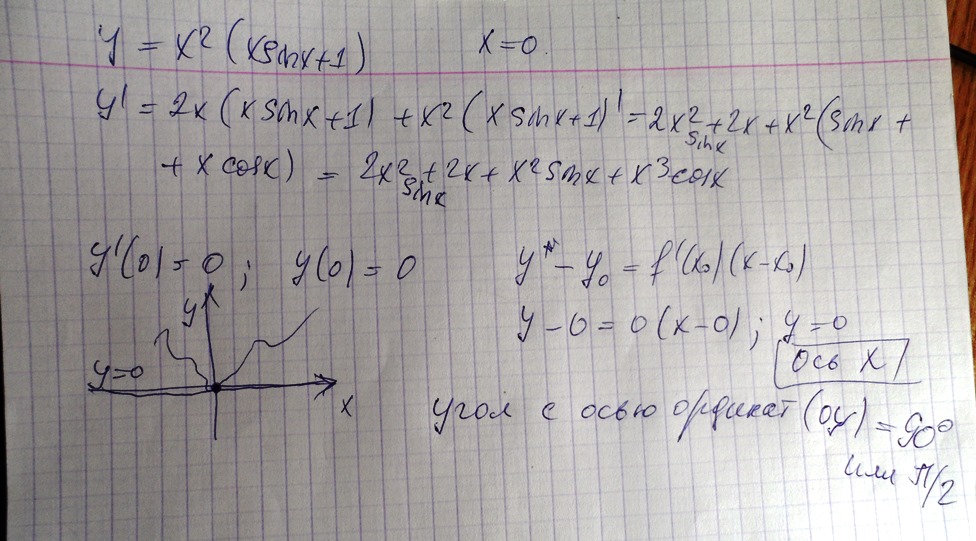 y = x² (x sinx+1) x=0.
y' = 2x (x sinx+1) + x² (x sinx+1)' = 2x² sinx + 2x + x² (sinx +
+ x cosx) = 2x² sinx + 2x + x² sinx + x³ cosx
y'(0) = 0 ; y(0) = 0
y - y₀ = f'(x₀) (x-x₀)
y - 0 = 0 (x-0) ; y = 0
ось X
y
y=0
x
угол с осью ординат (oy) = 90°
или π/2